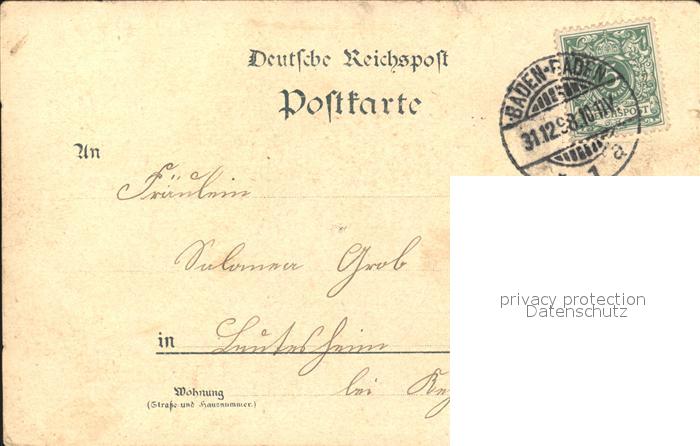 Deutsche Reichspost
Postkarte
BADEN-BADEN
31.12.98. 10-11V.
1 a
REICHSPOST
An
Fräulein
Salomea Grob
in Leutesheim
bei
Wohnung
(Straße und Hausnummer.)
privacy protection
Datenschutz